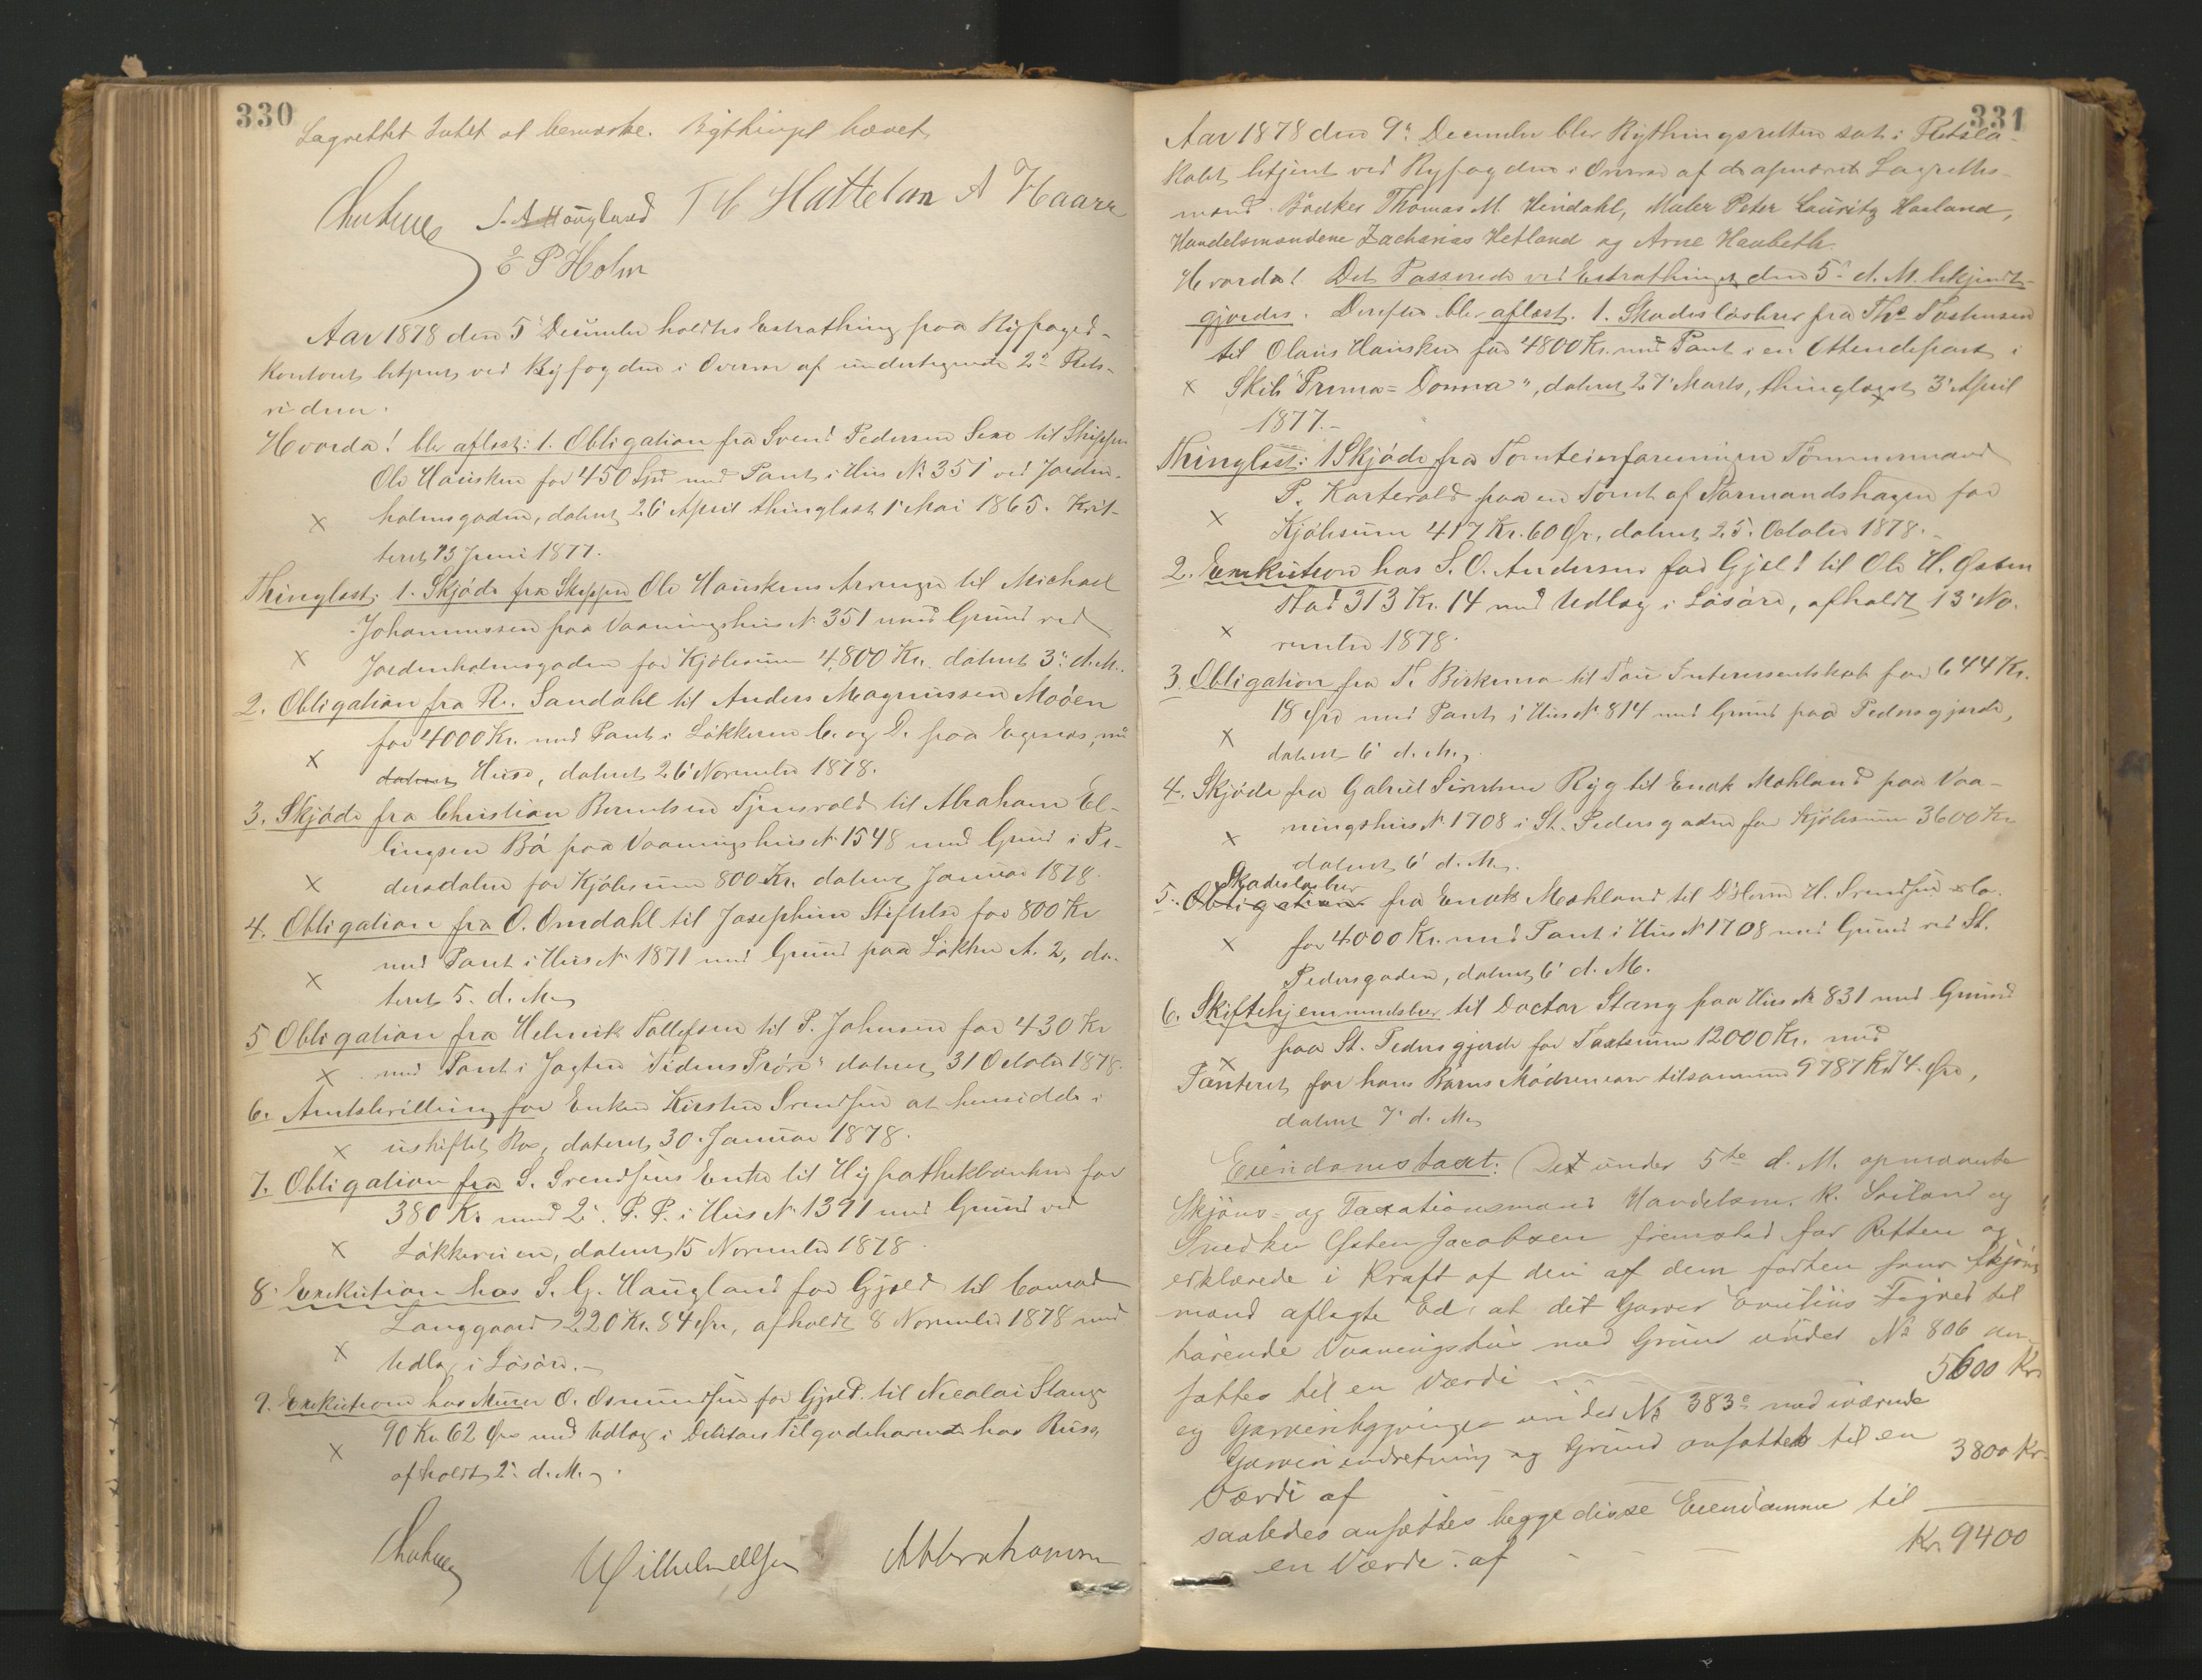 330
Lagrettet Intet at bemærke. Bythinget hævet
S. A. Haugland T C Hattelan A Haarr
E P Holm
Aar 1878 den 5' December holdtes Extrathing paa Byfoged-
kontoret betjent ved Byfogden i Overvær af undertegnede 2de Rets-
vidner.
Hvorda! blev aflæst: 1. Obligation fra Svend Pedersen Sexe til Skipper
Ole Hausken for 450 Spd med Pant i Hus No 351 ved Jorden-
holmsgaden, dateret 26 April thinglæst 1' Mai 1865. Kvit-
teret 23 Juni 1877.
Thinglæst: 1. Skjöde fra Skipper Ole Hauskens Arvinger til Michael
Johannessen paa Vaaningshus No 351 med Grund ved
Jordenholmsgaden for Kjöbesum 4,800 Kr. dateret 3' d. M.
2. Obligation fra R. Sandahl til Anders Magnussen Moöen
for 4000 Kr. med Pant i Lökkerne C. og D. paa Egenes, med
dateret Huse, dateret 26' November 1878.
3. Skjöde fra Christian Berntsen Tjensvold til Abraham El-
lingsen Bö paa Vaaningshus No 1548 med Grund i Pe-
dersdalen for Kjöbesum 800 Kr. dateret Januar 1878.
4. Obligation fra O. Omdahl til Josephine Stiftelse for 800 Kr
med Pant i Hus No 1871 med Grund paa Lökken A. 2, da-
teret 5. d. M.
5 Obligation fra Helmik Tollefsen til P. Johnsen for 430 Kr
med Pant i Jagten "Tidens Pröve" dateret 31 October 1878.
6. Amtsbevilling for Enken Kirsten Svendsen at hensidde i
uskiftet Bo, dateret 30. Januar 1878.
7. Obligation fra S. Svendsens Enke til Hypothekbanken for
380 Kr med 2' P. P. i Hus No 1391 med Grund ved
Lökkeveien, dateret 15 November 1878
8. Exekution hos S. G. Haugland for Gjæld til Conrad
Langgaard 220 Kr. 84 Öre, afholdt 8 November 1878 med
Udlæg i Lösöre.
9. Exekution hos Murer O. Osmundsen for Gjæld til Nicolai Stang
90 Kr 62 Öre med Udlæg i Debitors Tilgodehavende hos Russ,
afholdt 2' d. M.
Wilhelm Olsen A Abrahamsen
331
Aar 1878 den 9' December blev Bythingsretten sat i Retslo-
kalet betjent ved Byfogden i Overvær af de opnævnte Lagrettes-
mænd Bödker Thomas M. Hindahl, Maler Peter Lauritz Haaland,
Handelsmændene Zacharias Hetland og Arne Haabeth.
Hvorda! Det Passerede ved Extrathinget den 5' d. M. bekjendt-
gjordes. Derefter blev aflæst: 1. Skadeslösbrev fra Ths
til Olaus Hausken for 4800 Kr. med Pant i en Ottendepart i
Skib "Prima-Donna", dateret 27' Marts, thinglæst 3' April
1877.
Thinglæst: 1 Skjöde fra Tomteinforeningen Tömmermand
P. Kartevold paa en Tomt af Normandshagen for
Kjöbesum 417 Kr. 60 Ör, dateret 25. October 1878.
2. Exekution hos S. O. Andersen for Gjæld til Ole H. Östen
Stad 313 Kr. 14 med Udlæg i Lösöre, afholdt 13' No-
vember 1878.
3. Obligation fra T. Birkemo til Tau Interessentskab for 644 Kr.
18 Öre med Pant i Hus No 814 med Grund paa Pedersgjerde,
dateret 6' d. M.
4. Skjöde fra Gabriel Sivertsen Ryg til Enok Mæhland paa Vaa-
ningshus No 1708 i St. Pedersgaden for Kjöbesum 3600 Kr
dateret 6' d. M.
Skadeslösbrev
5. Obligation fra Enok Mæhland til D'Herrer H. Svendsen & Co.
for 4000 Kr. med Pant i Hus No 1708 med Grund ved St.
Pedersgaden, dateret 6' d. M.
6. Skiftehjemmelsbrev til Doctor Stang paa Hus No 831 med Grund
paa St. Pedersgjerde for Taxtsum 12000 Kr. med
Panteret for hans Börns Mödrenearv tilsammen 9787 Kr 74 Öre,
dateret 7' d. M.
Eiendomstaxt: Det under 5te d. M. opnævnte
Skjöns- og Taxationsmænd Handelsm. R. Soiland og
Snedker Östen Jacobsen fremstod for Retten og
erklærede i Kraft af den af dem forhen som Skjöns
mænd aflagte Ed, at det Garver Emilius Figved til
hörende Vaaningshus med Grund under No 806 an-
sattes til en Værdi 5600 Kr.
og Garveribygningen under No 383a med iværende
Garveri indretning og Grund ansattes til en
Værdi af 3800 Kr.
saaledes ansættes begge disse Eiendomme til
en Værdi af Kr. 9400